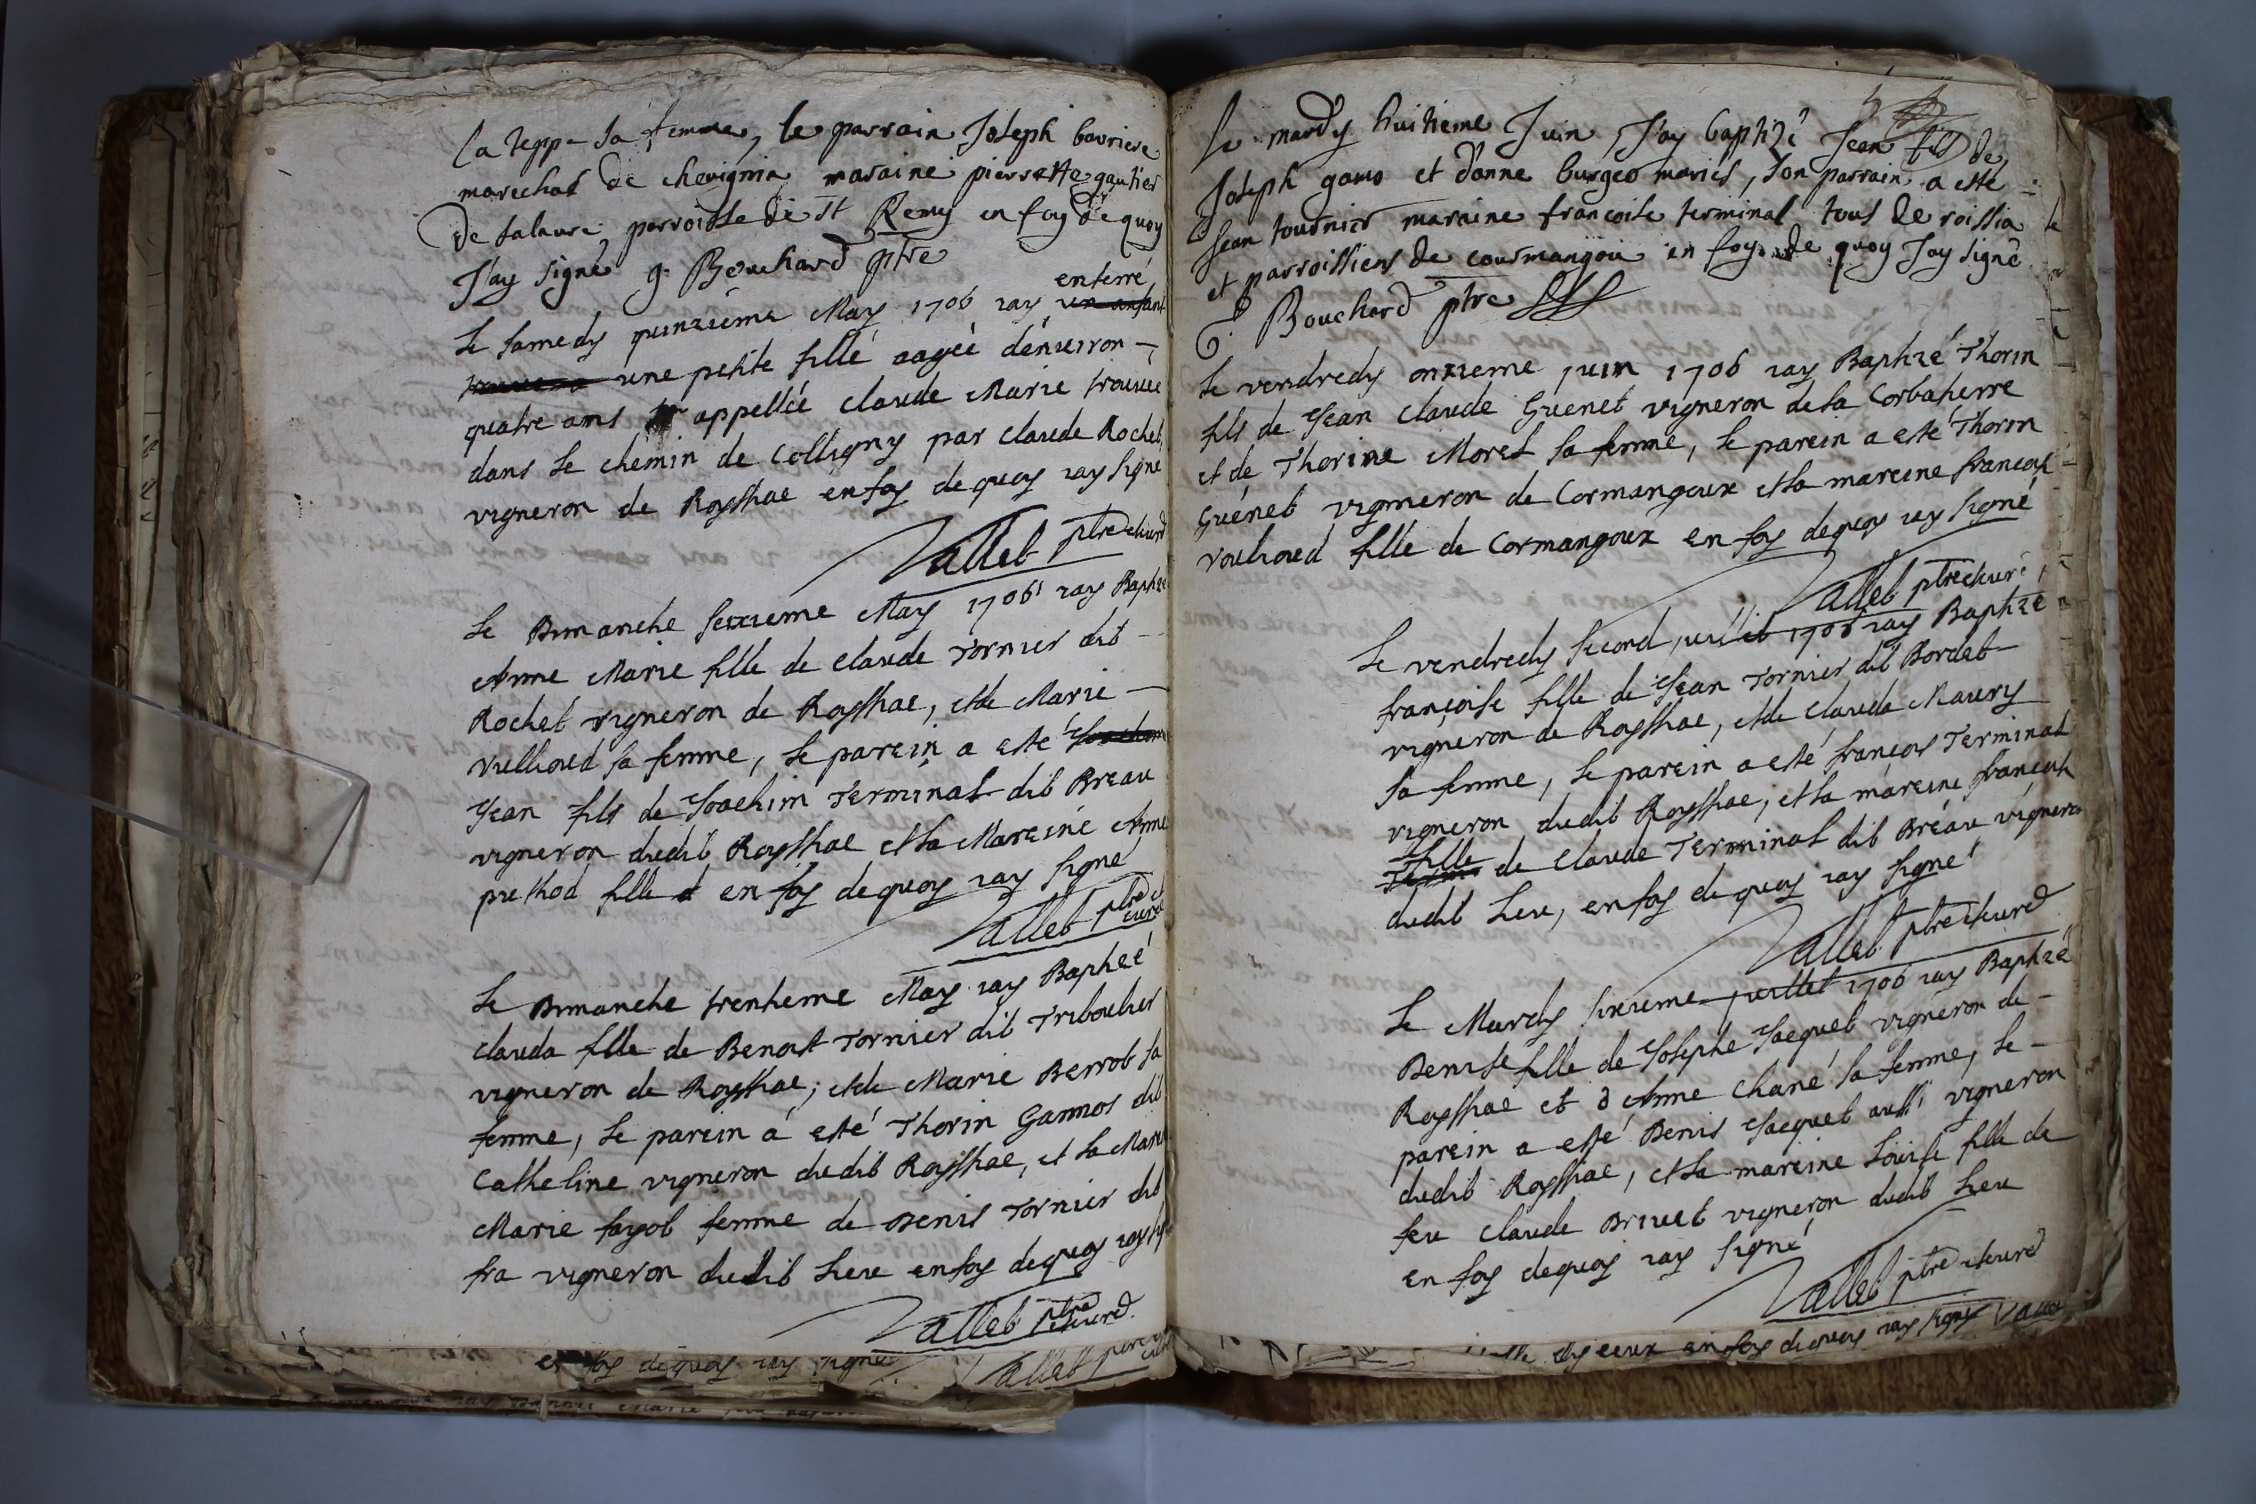 la tepp sa femme, le parrain Joseph bovriere
marechal de chevignia maraine pierrette gautier
de salavre parroisse de St Remy en foy de quoy
J'ay signé g. Bouchard ptre
enterré
Le samedy quinzième May 1706 iay un anfant
une petite fillé aagéé dénuiron
quatre ans appelléé claude Marie trouuéé
dans le chemin de Colligny par claude Rochet
vigneron de Roysshae en foy de quoy iay signé
Vallet ptre et curé
Le Dimanche seizieme May 1706 iay Baptizé
Anne Marie fille de claude Tornier dit
Rochet vigneron de Roysshae, et de Marie
vullioud sa femme, le parein a esté
Jean fils de Joachim Terminal dit Breau
vigneron dudit Roysshae et la Mareiné Anne
prethod fille d en foy de quoy iay signé
Vallet ptre et curé
Le Dimanche trentieme May iay Baptizé
clauda fille de Benoit Tornier dit Triboulier
vigneron de Roysshae, et de Marie Berrod sa
femme, le parein á esté Thorin Gannos dit
Catheline vigneron dudit Roysshae, et la Mareine
Marie fayot femme de Denis Tornier dit
fra vigneron dudit Lieu en foy dequoy iay signé
Vallet ptre et curé
en foy de quoy iay signé
Vallet ptre curé
Le mardy huitieme Juin J'ay baptizé Jean fils de
Joseph gaus et d'anne burgeo mariés, son parrain a esté
Jean tournier maraine francoise terminal tous de roissia
et parroissiens de courmangou en foy de quoy J'ay signé
g. Bouchard ptre
Le vendredy onzieme juin 1706 iay Baptizé Thorin
fils de Jean Claude Guenet vigneron de la Corbaterre
et de Thorine Morel sa femme, le parein a esté Thorin
Guénet vigneron de Cormangoux et la mareine françoise
voulioud fille de Cormangoux en foy dequoy iay signé
Vallet ptre et curé
Le vendredy second juillet 1706 iay Baptizé
françoise fille de Jean Tornier dit Bordet
vigneron de Roysshae, et de Clauda Maury
sa femme, le parein a esté françois Terminal
vigneron dudit Roysshae, et la mareine françoise
fille
de Claude Terminal dit Bréau vigneron
dudit Lieu, en foy de quoy iay signé
Vallet ptre et curé
Le Mardy sixieme juillet 1706 iay Baptizé
Denise fille de Josephe Jacquet vigneron de
Roysshae et d Anne Chané sa femme, le
parein a esté Denis Jacquet aussi vigneron
dudit Roysshae, et la mareine Loüise fille de
feu Claude Briuet vigneron dudit Lieu
en foy dequoy iay signé
Vallet ptre et curé
en foy de quoy iay signé Vallet